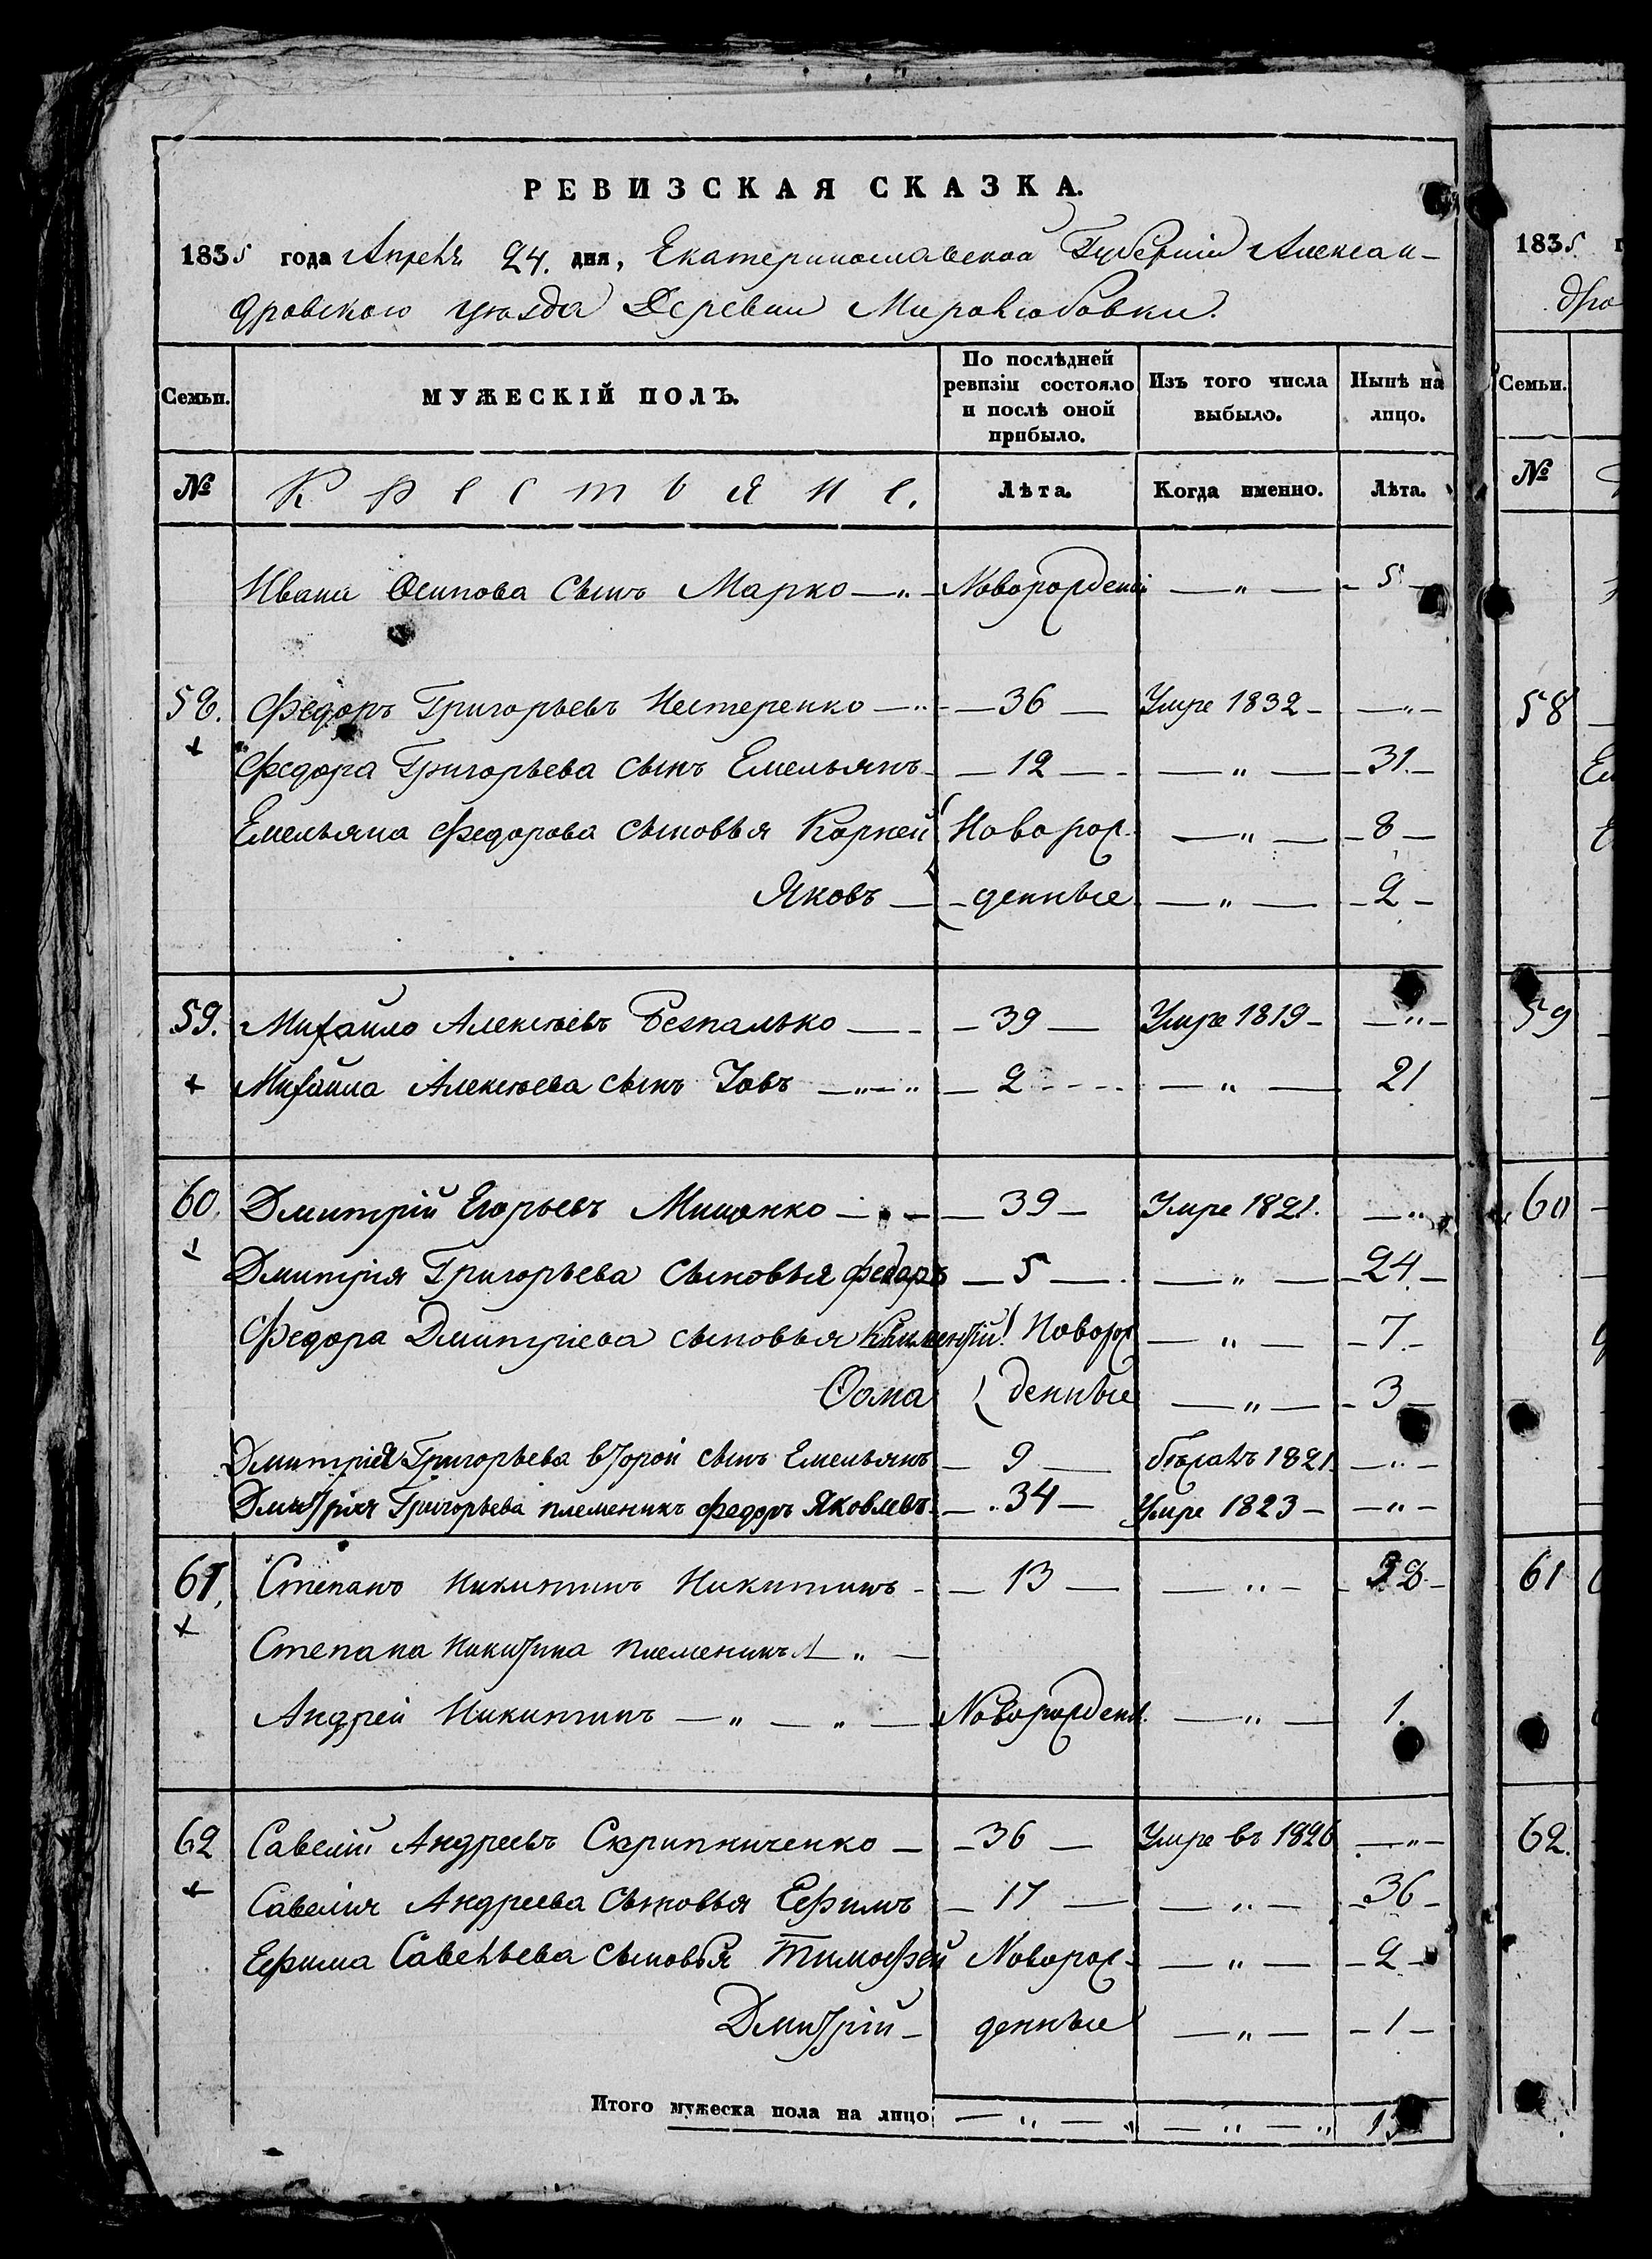 РЕВИЗСКАЯ СКАЗКА.
1835 года Апреля 24. дня, Екатеринославской Губерніи Алексан-
дровского уѣзда Деревни Миролюбовки.
Семьи. МУЖЕСКІЙ ПОЛЪ. По послѣдней ревизіи состояло и послѣ оной прибыло. Изъ того числа выбыло. Нынѣ на лицо.
№ Крестьяне. Лѣта. Когда именно. Лѣта.
Ивана Осипова Сынъ Марко —„— Новорожденій —„— 5
58. Федоръ Григорьевъ Нестеренко —„— 36 — Умре 1832 — —„—
Федора Григорьева сынъ Емельянъ — 12 — —„— 31.
Емельяна Федорова сыновья Корней Новорож- —„— 8
Яковъ — денные —„— 2
59. Михайло Алексѣевъ Безпалько — 39 — Умре 1819 — —„—
Михайла Алексѣева сынъ Іовъ —„—„ 2 —„— 21
60. Дмитрій Егорьевъ Мищенко — 39 — Умре 1821. —„
Дмитрія Григорьева сыновья Федаръ — 5 — —„— 24
Федора Дмитріева сыновья Новорож —„— 7.
Ѳома денные —„— 3
Дмитрія Григорьева второй сынъ Емельянъ — 9 — бѣжалъ 1821 —„—
Дмитрія Григорьева племеникъ Федоръ Яковлевъ — 34 — Умре 1823 — —„—
61. Степанъ Никитинъ Никитинъ — 13 — —„— 38
Степана Никитина племеникъ —„—
Андрей Никитинъ —„—„— Новорожден. —„— 1.
62 Савелій Андреевъ Скрипниченко — 36 — Умре въ 1826 —„—
Савелія Андреева Сыновья Ефимъ — 17 — —„— 36
Ефима Савельева сыновья Тимофей Новорож- —„— 2
Дмитрій — денные —„— 1
Итого мужеска пола на лицо —„—„ —„—„
1835
дро
Семьи.
№
58
59
60
61
62.